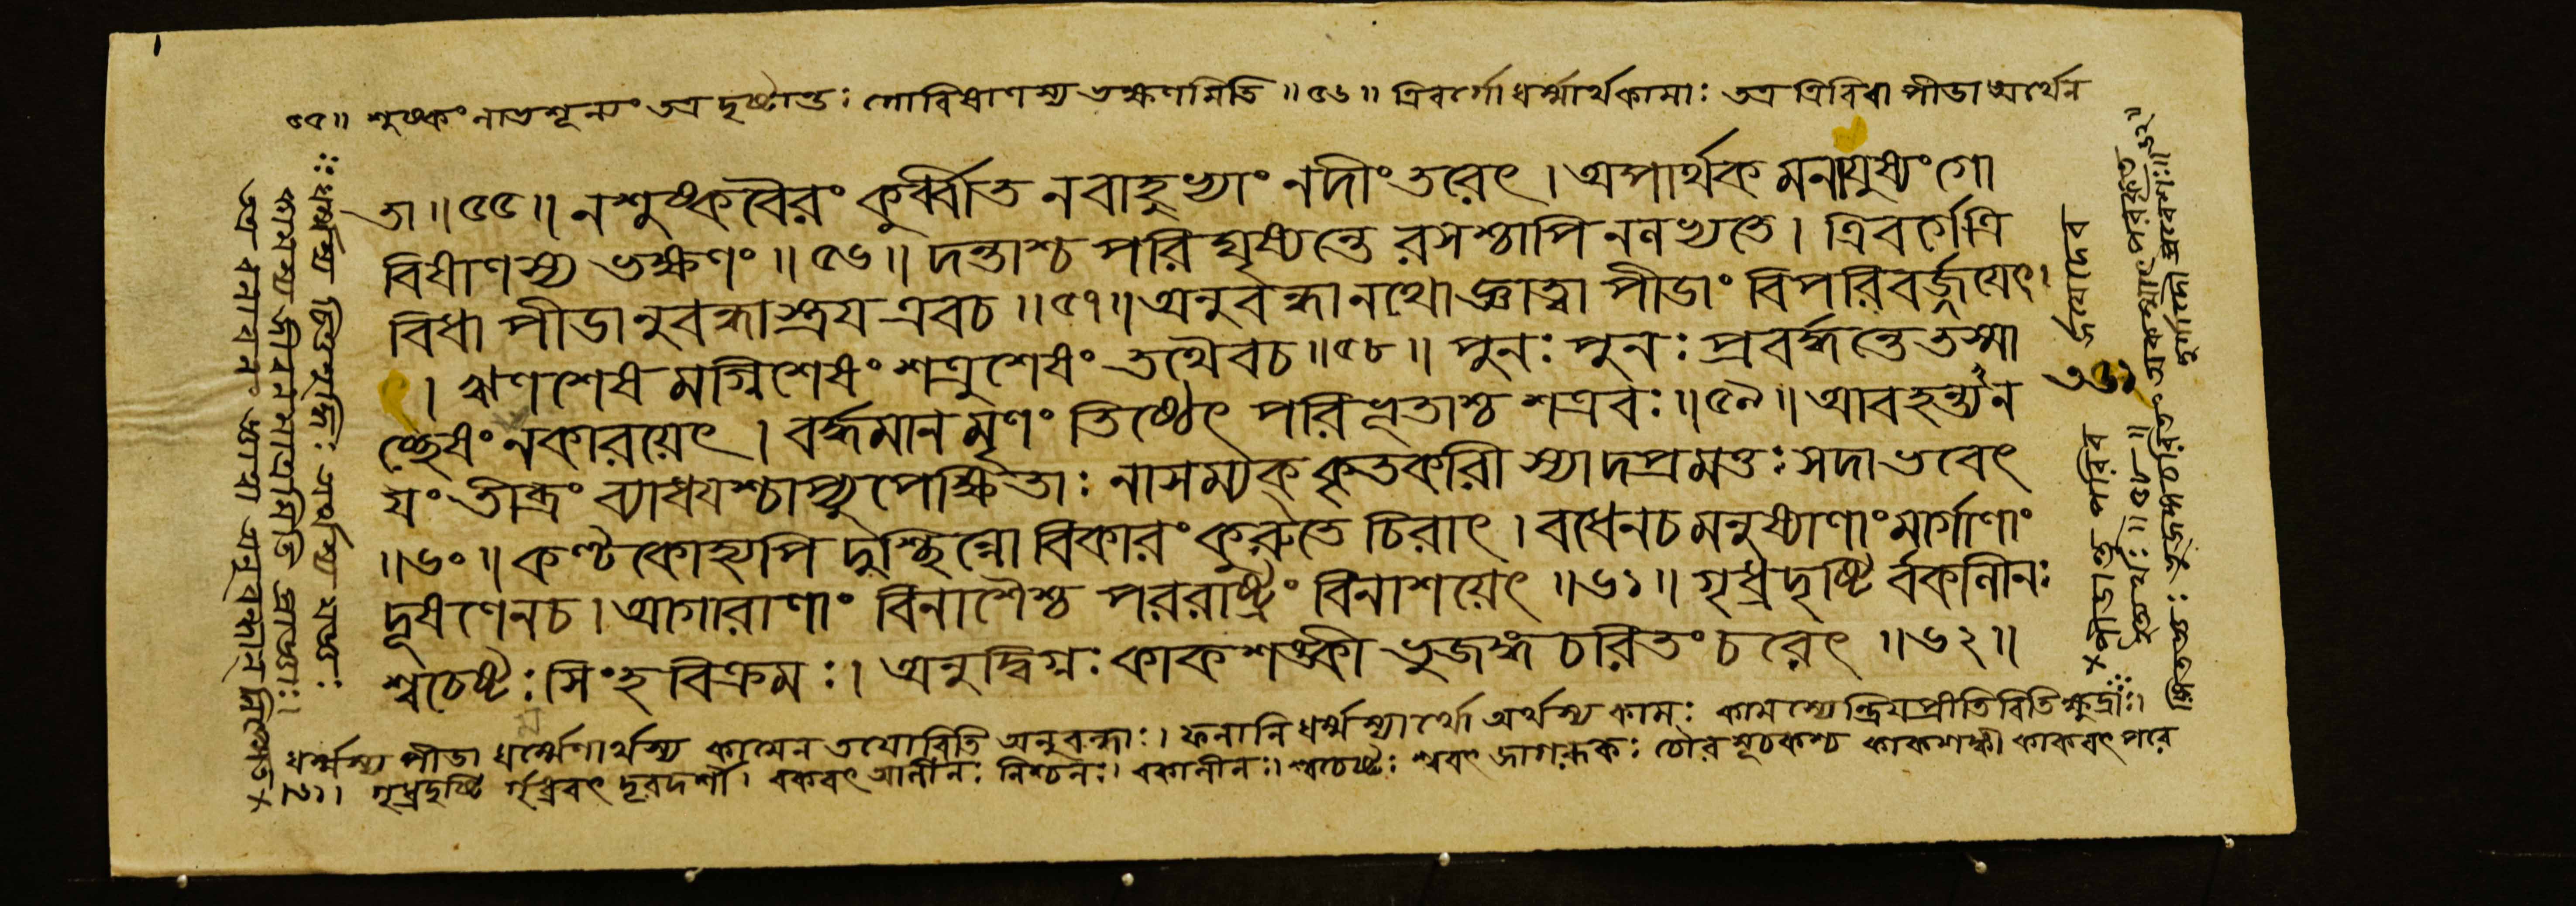 ৫৫॥ শুষ্কং নাতশূন্যং তত্র দৃষ্টান্তঃ গোবিষাণস্য ভক্ষণমিতি ॥৫৬॥ ত্রিবর্গো ধর্ম্মার্থকামাঃ তত্র ত্রিবিধা পীডা অর্থেন
তা ॥৫৫॥ নশুষ্কবৈরং কুর্ব্বীত নবাহুভ্যাং নদীং তরেৎ । অপার্থক মনাযুষ্যং গো
বিষাণস্য ভক্ষণং ॥৫৬॥ দন্তাশ্চ পরিঘৃষ্যন্তে রসশ্চাপি নলভ্যতে । ত্রিবর্গেত্রি
বিধা পীডানুবন্ধাস্ত্রয এবচ ॥৫৭॥ অনুবন্ধানথো জ্ঞাত্বা পীডাং বিপরিবর্জ্জযেৎ
। ঋণশেষ মগ্নিশেষং শত্রুশেষং তথৈবচ ॥৫৮॥ পুনঃ পুনঃ প্রবর্দ্ধন্তে তস্মা
চ্ছেষং নকারয়েৎ । বর্দ্ধমান মৃণং তিষ্ঠেৎ পরিভূতাশ্চ শত্রবঃ ॥৫৯॥ আবহন্ত্যন
যং তীব্রং ব্যাধযশ্চাপ্যুপেক্ষিতাঃ নাসম্যক্ কৃতকারী স্যাদপ্রমত্তঃ সদা ভবেৎ
॥৬০॥ কণ্টকোহ্যপি দুশ্ছিন্নো বিকারং কুরুতে চিরাৎ । বধেনচ মনুষ্যাণাং মার্গাণাং
দূষণেনচ । আগারাণাং বিনাশৈশ্চ পররাষ্ট্রং বিনাশয়েৎ ॥৬১॥ গৃধ্রদৃষ্টি র্বকলীনঃ
শ্বচেষ্টঃ সিংহ বিক্রমঃ । অনুদ্বিগ্নঃ কাকশঙ্কী ভুজঙ্গ চরিতং চরেৎ ॥৬২॥
ধর্ম্মস্য পীডা ধর্ম্মেণার্থস্য কামেন তযোরিতি অনুবন্ধাঃ । ফলানি ধর্ম্মস্যার্থো অর্থস্য কামঃ কামস্যেন্দ্রিযপ্রীতিরিতি ক্ষুদ্রাঃ।
॥৬১। গৃধ্রদৃষ্টি র্গৃধ্রবৎ দূরদর্শী । বকবৎ আলীনঃ নিশ্চলঃ । বকালীনঃ । শ্বচেষ্টঃ শ্ববৎ জাগরূকঃ চৌর সূচকশ্চ কাকশঙ্কী কাকবৎ পরে